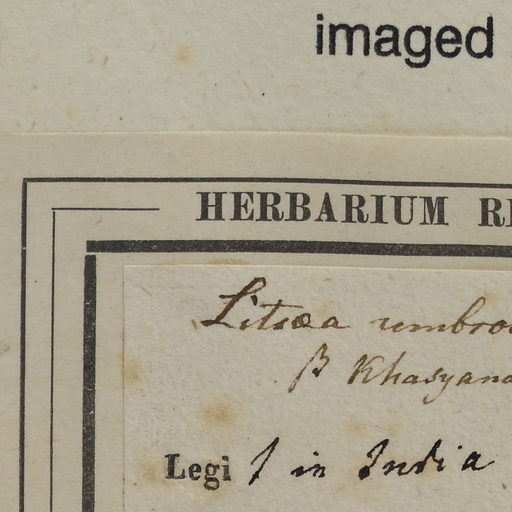 imaged
HERBARIUM
Litsæa umbro
β Khasyana
Legi in India